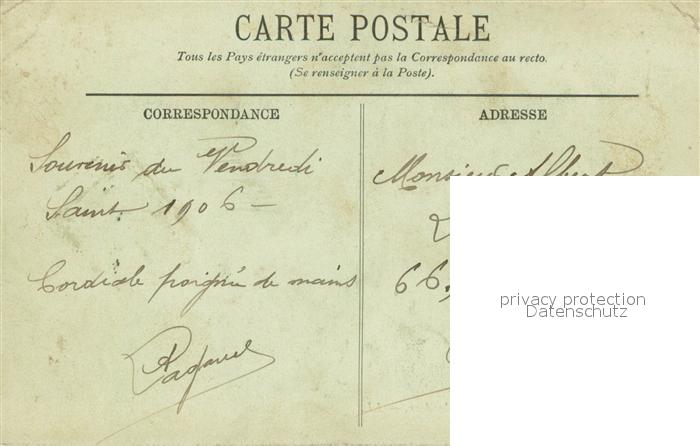 CARTE POSTALE
Tous les Pays étrangers n'acceptent pas la Correspondance au recto.
(Se renseigner à la Poste).
CORRESPONDANCE
Souvenir du Vendredi
Saint. 1906 -
Cordiale poignée de mains
ADRESSE
Monsieur Albert
66,
privacy protection
Datenschutz